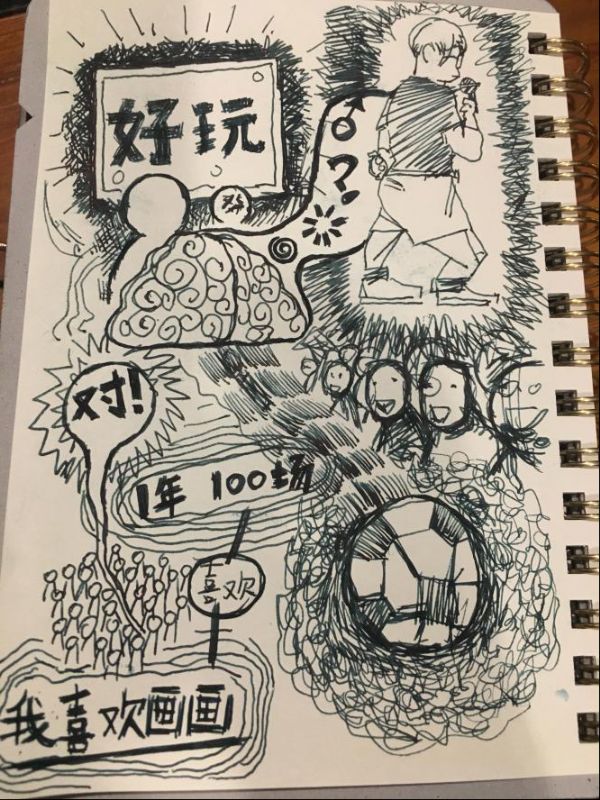 好玩
对!
1年 100场
喜欢
我喜欢画画